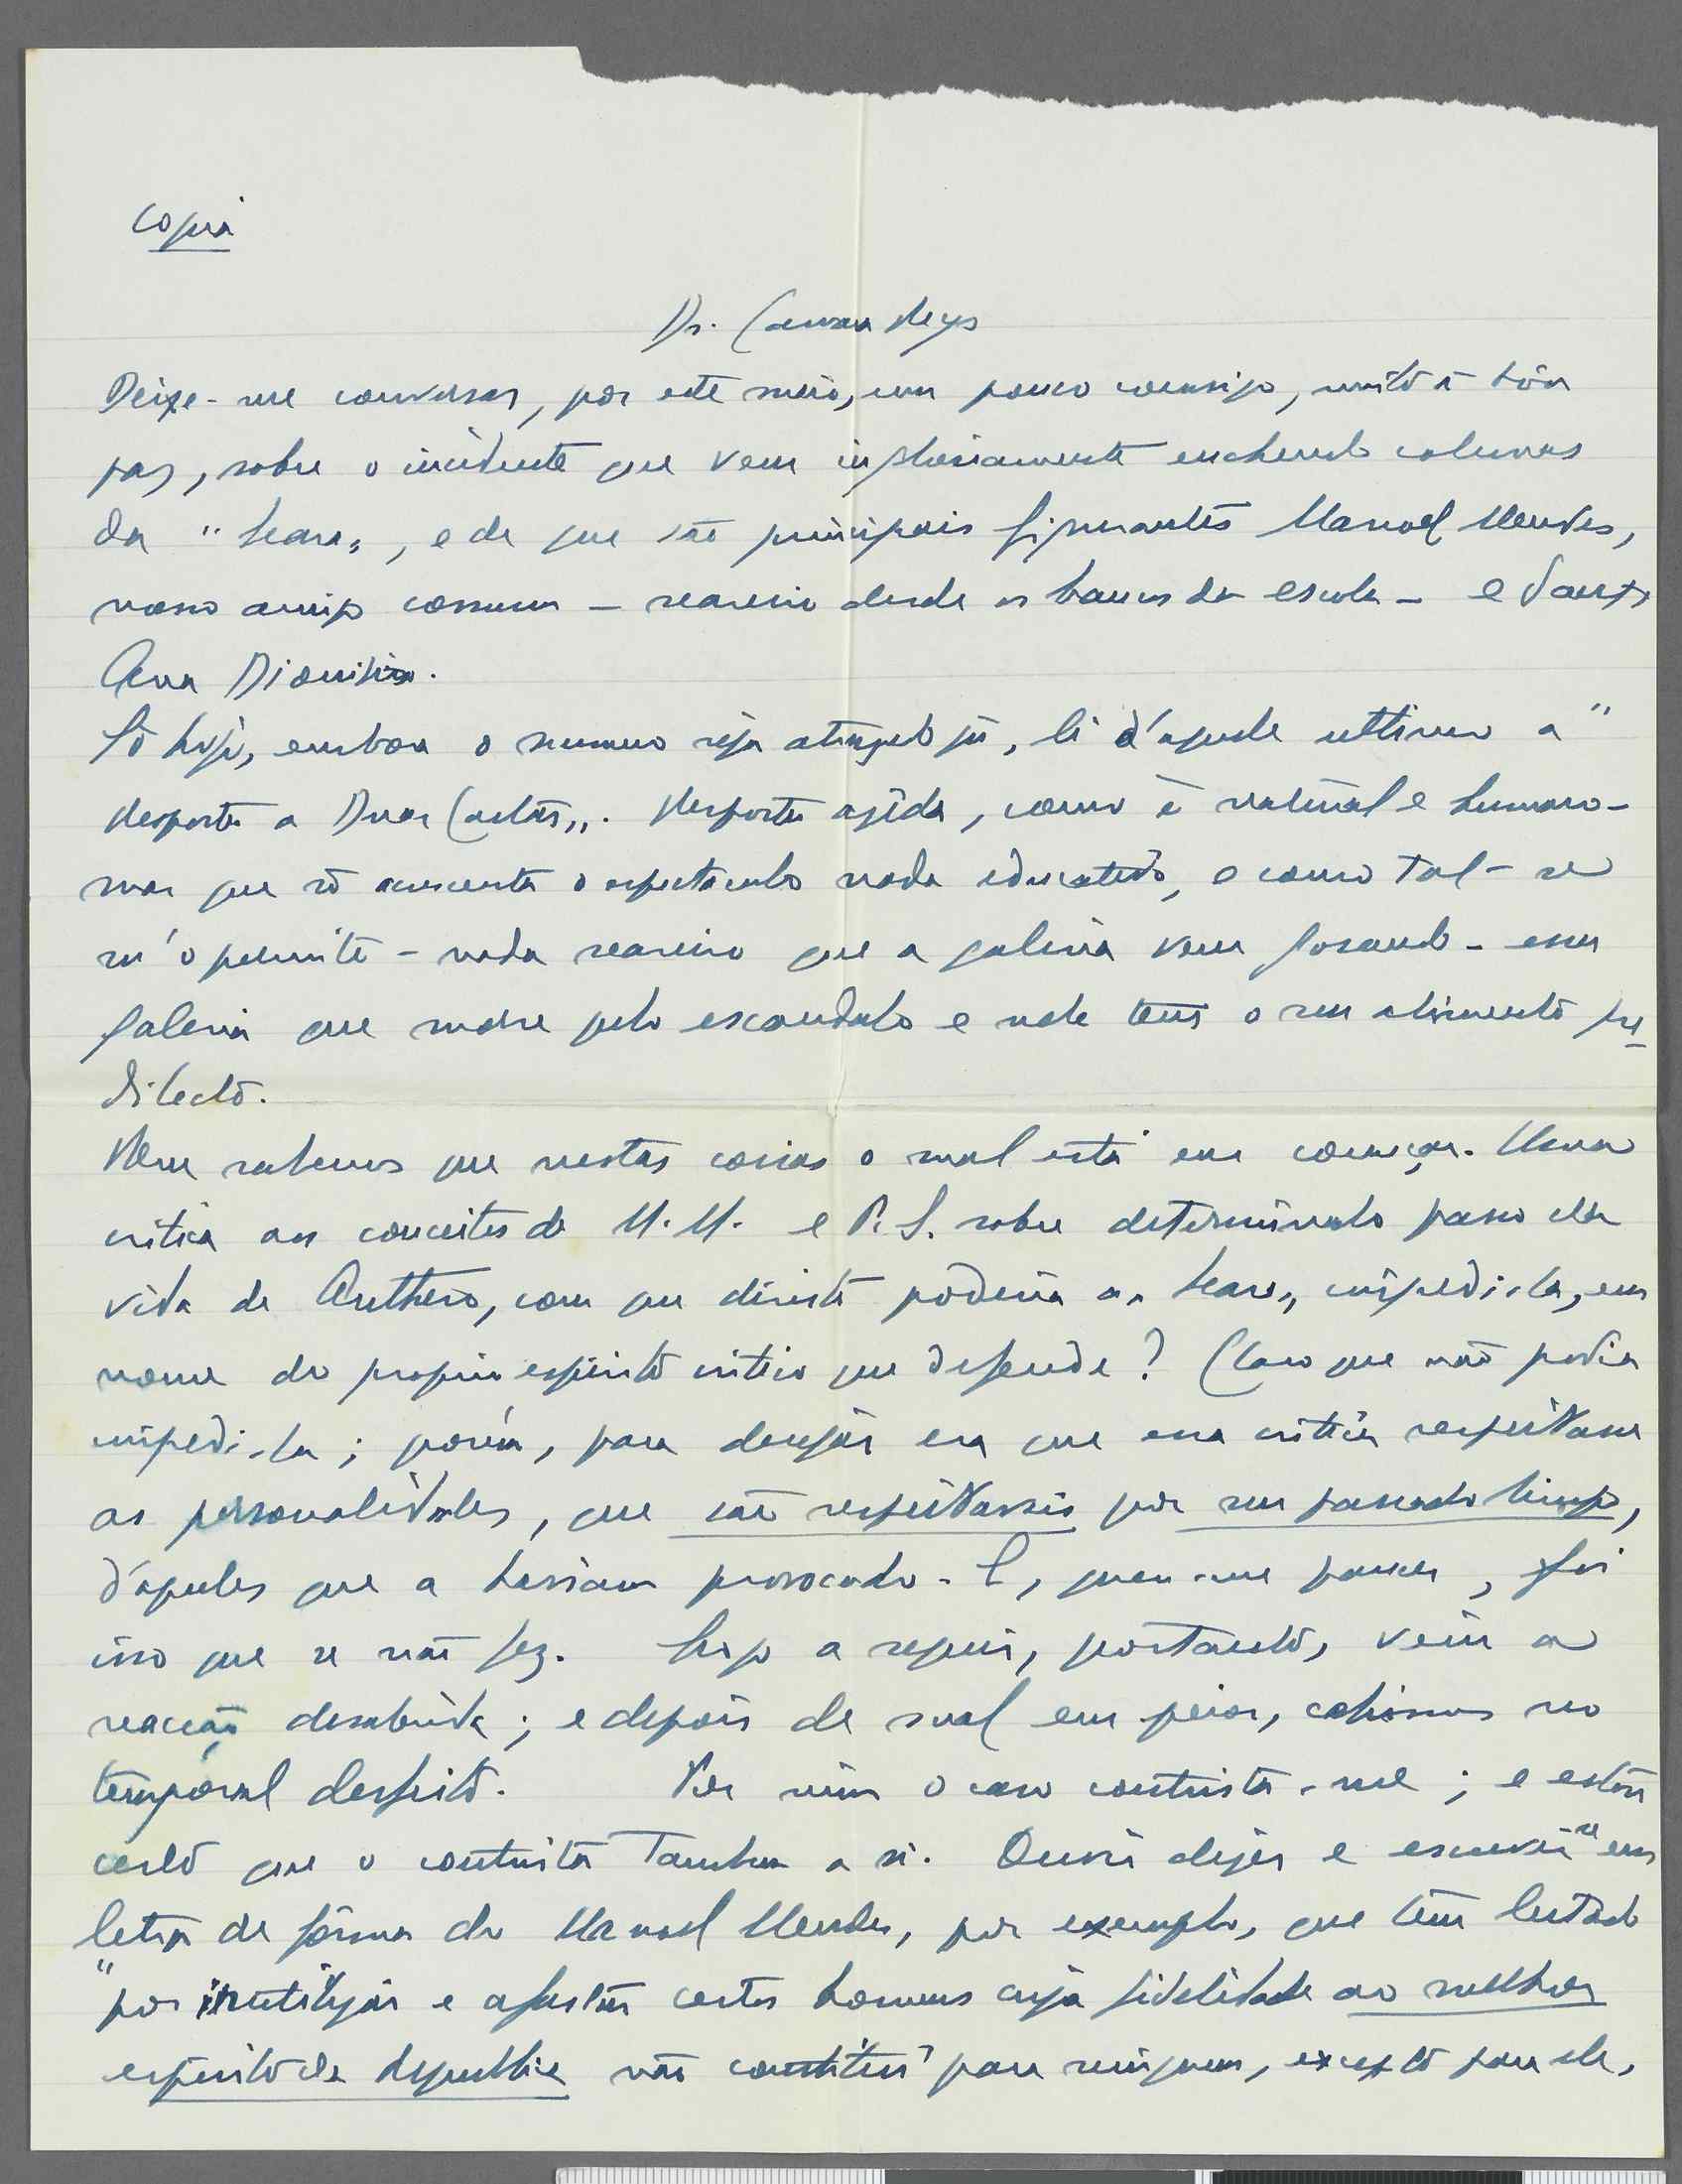 Copia
Dr. Camara Reys
Deixe-me conversar, por este meio, um pouco comsigo, muito á bôa
paz, sobre o incidente que vem ingloriamente enchendo colunas
da "Seara", e de que são principais figurantes Manoel Mendes,
nosso amigo comum - seareiro desde os bancos da escola - e Sant'
Anna Dionisio.
Só hoje, embora o numero seja atrazado já, li d'aquele ultimo a "
Resposta a Duas Cartas". Resposta azêda, como é natural e humano-
mas que só acrescenta o espectaculo nada educativo, e como tal - se
m'o permite - nada seareiro que a galeria vem gosando - essa
galeria que morre pelo escandalo e nele tem o seu alimento pre
dilecto.
Bem sabemos que nestas coisas o mal está em começar. Uma
critica aos conceitos de M. M. e P. S. sobre determinado passo da
vida de Anthero, com que direito poderia a "Seara" impedi-la, em
nome do proprio espirito critico que defende? Claro que não podia
impedi-la; porém, para desejar era que essa critica respeitasse
as personalidades, que são respeitaveis por seu passado limpo,
d'aqueles que a haviam provocado. E, quer-me parecer, foi
isso que se não fez. Logo a seguir, portanto, veiu a
reacção desabrida; e depois de mal em peior, cahimos no
temporal desfeito. Por mim o caso contrista-me; e estou
certo que o contrista tambem a si. Ouvir dizer e escrever-se em
letra de fôrma do Manoel Mendes, por exemplo, que tem lutado
"por inutilizar e afastar certos homens cuja fidelidade ao melhor
espirito da Republica não constitui para ninguem, excepto para ele,